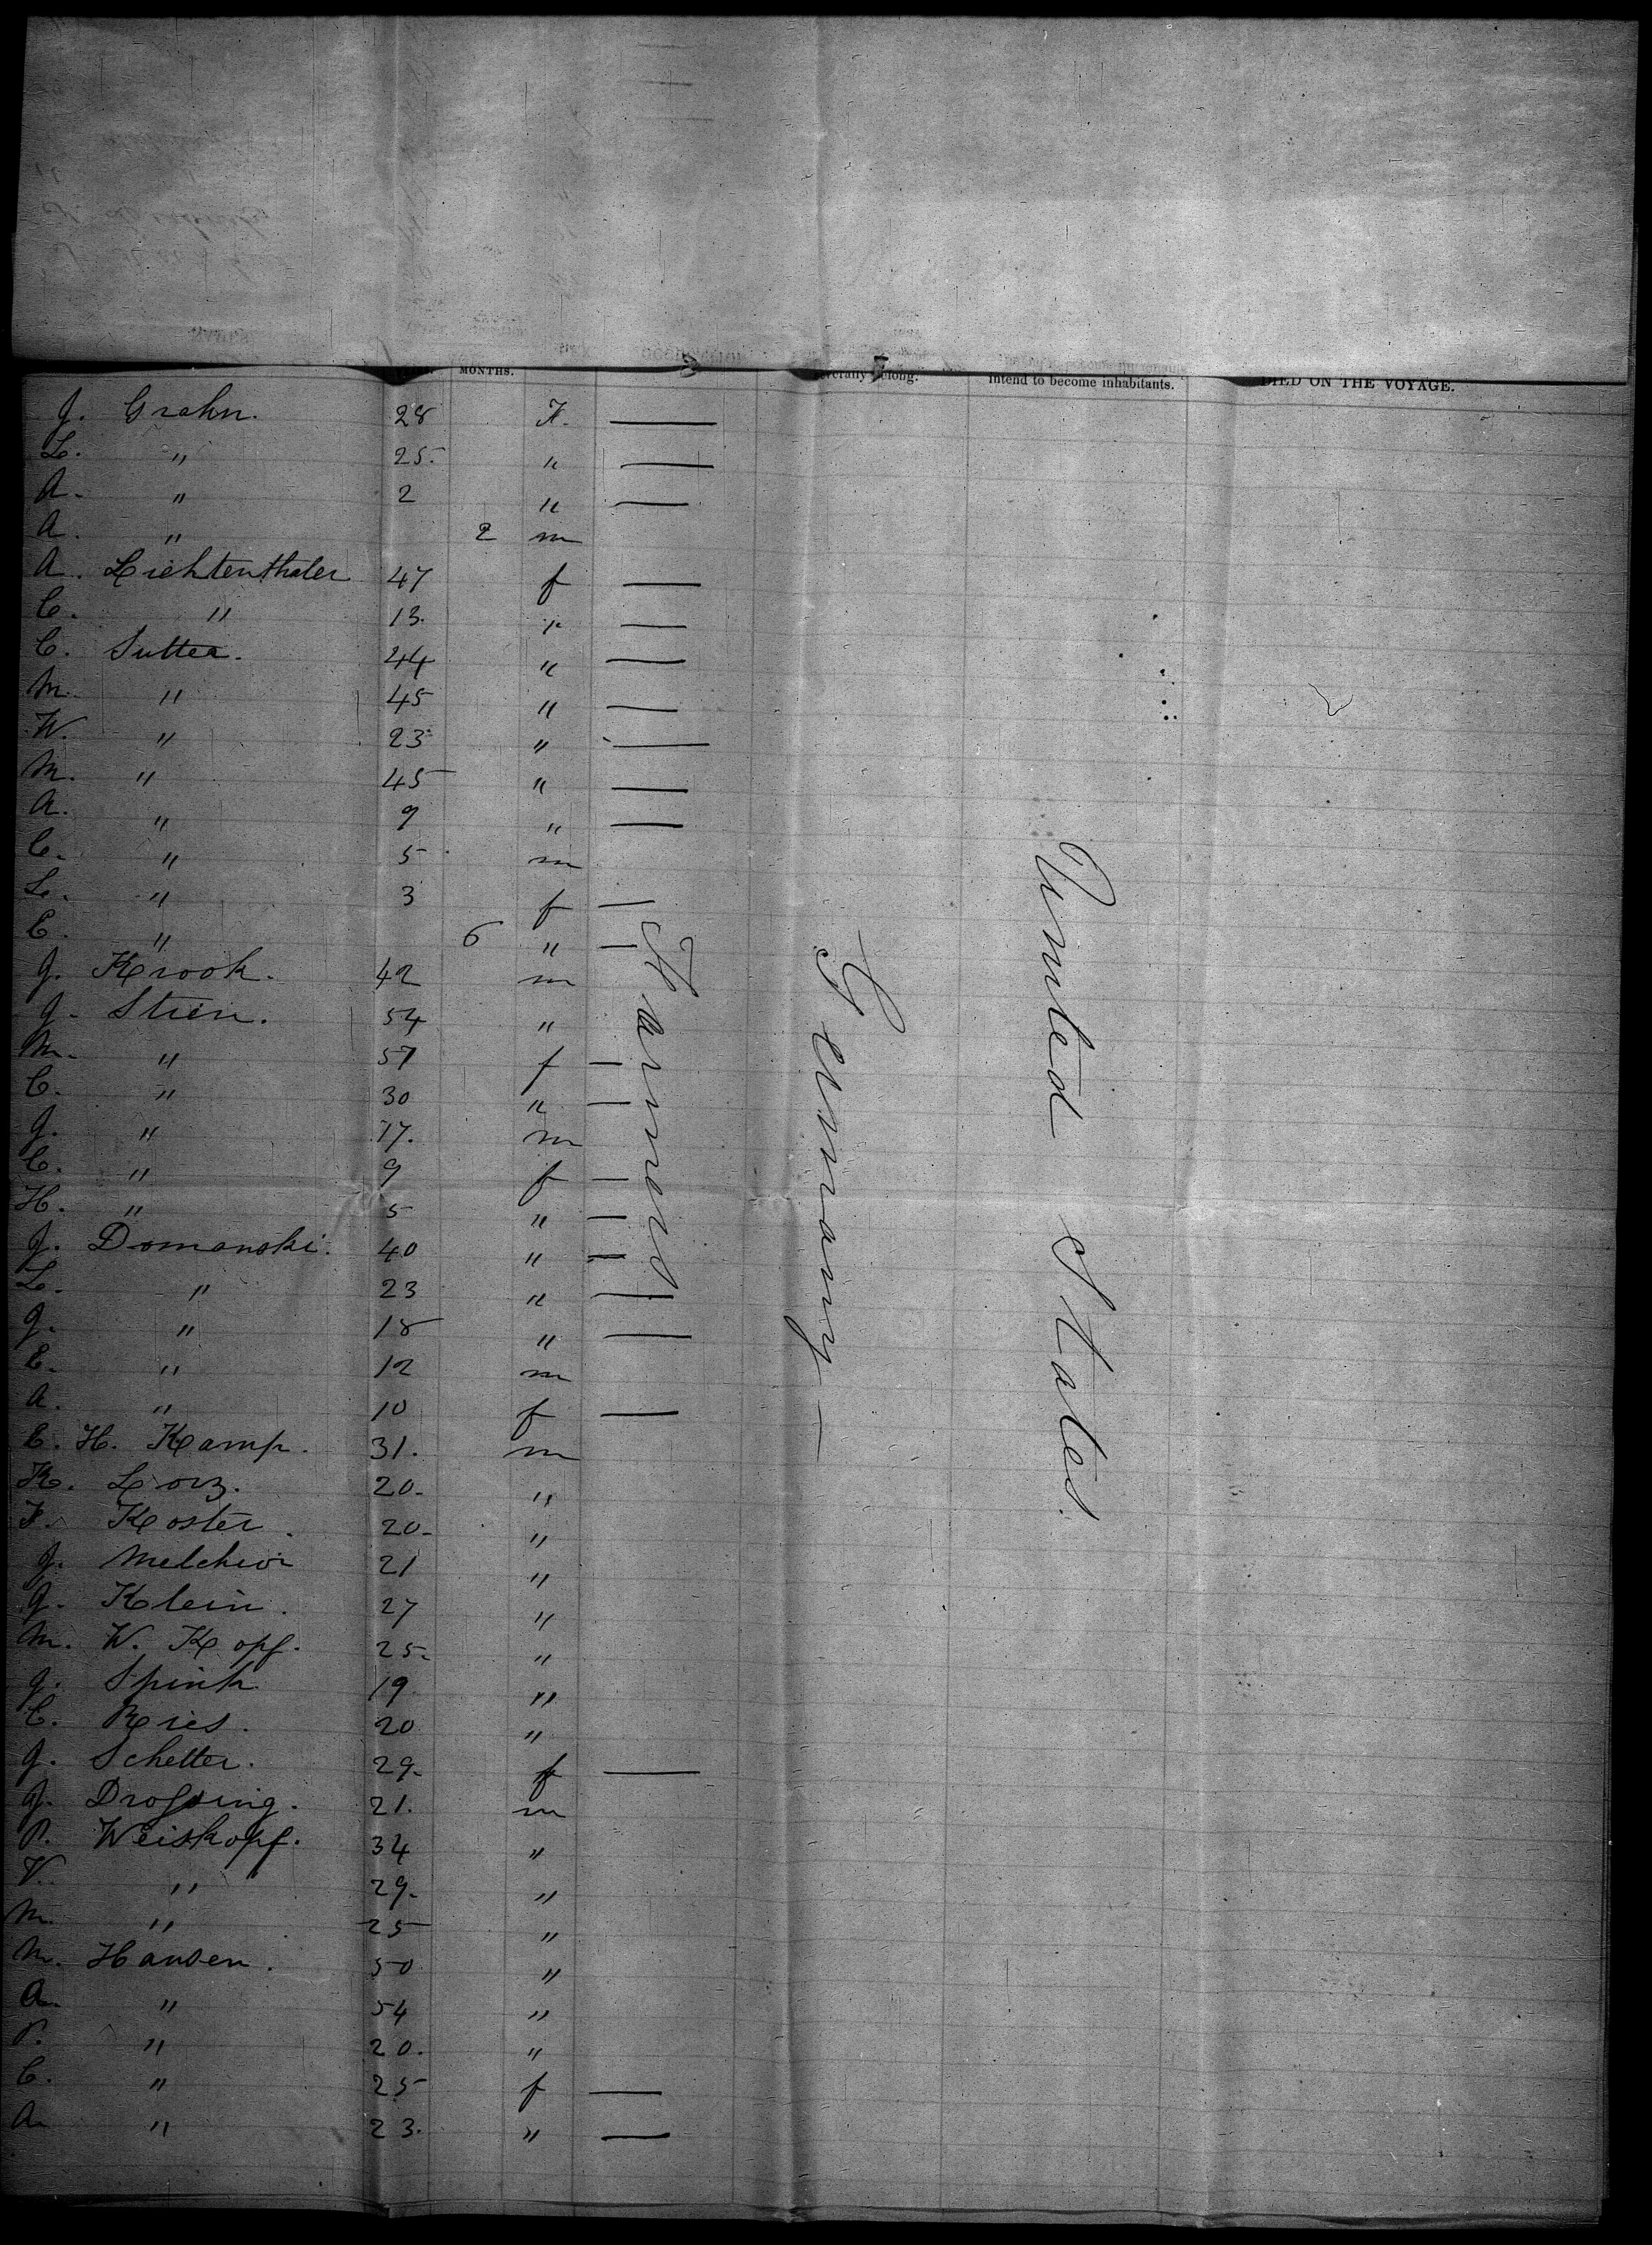 MONTHS.
severally belong.
intend to become inhabitants.
DIED ON THE VOYAGE.
J. Grahn. 28 F. —
L. " 25. " —
A. " 2 " —
A. " 2 m
A. Lichtenthaler 47 f —
C. " 13. " —
C. Sutter. 44 " —
M. " 45 " —
W. " 23 " —
M. " 45 " —
A. " 9 " —
C. " 5 m
L. " 3 f —
E. " 6 " —
J. Krook. 42 m
J. Stien. 54 "
M. " 57 f —
C. " 30 " —
J. " 17. m
C. " 9 f —
H. " 5 " —
J. Domanski. 40 " —
L. " 23 " —
J. " 18 " —
E. " 12 m
A. " 10 f —
E. H. Kamp. 31. m
K. Lorz. 20. "
F. Koster. 20. "
J. Melchior 21 "
J. Klein. 27 "
M. W. Kopf. 25. "
J. Spink 19 "
C. Ries. 20 "
J. Schetter. 29. f —
J. Drossing. 21. m
P. Weiskopf. 34 "
V. " 29. "
M. " 25 "
M. Hansen. 50 "
A. " 54 "
P. " 20. "
C. " 25 f —
A. " 23. " —
Farmers
Germany —
United States